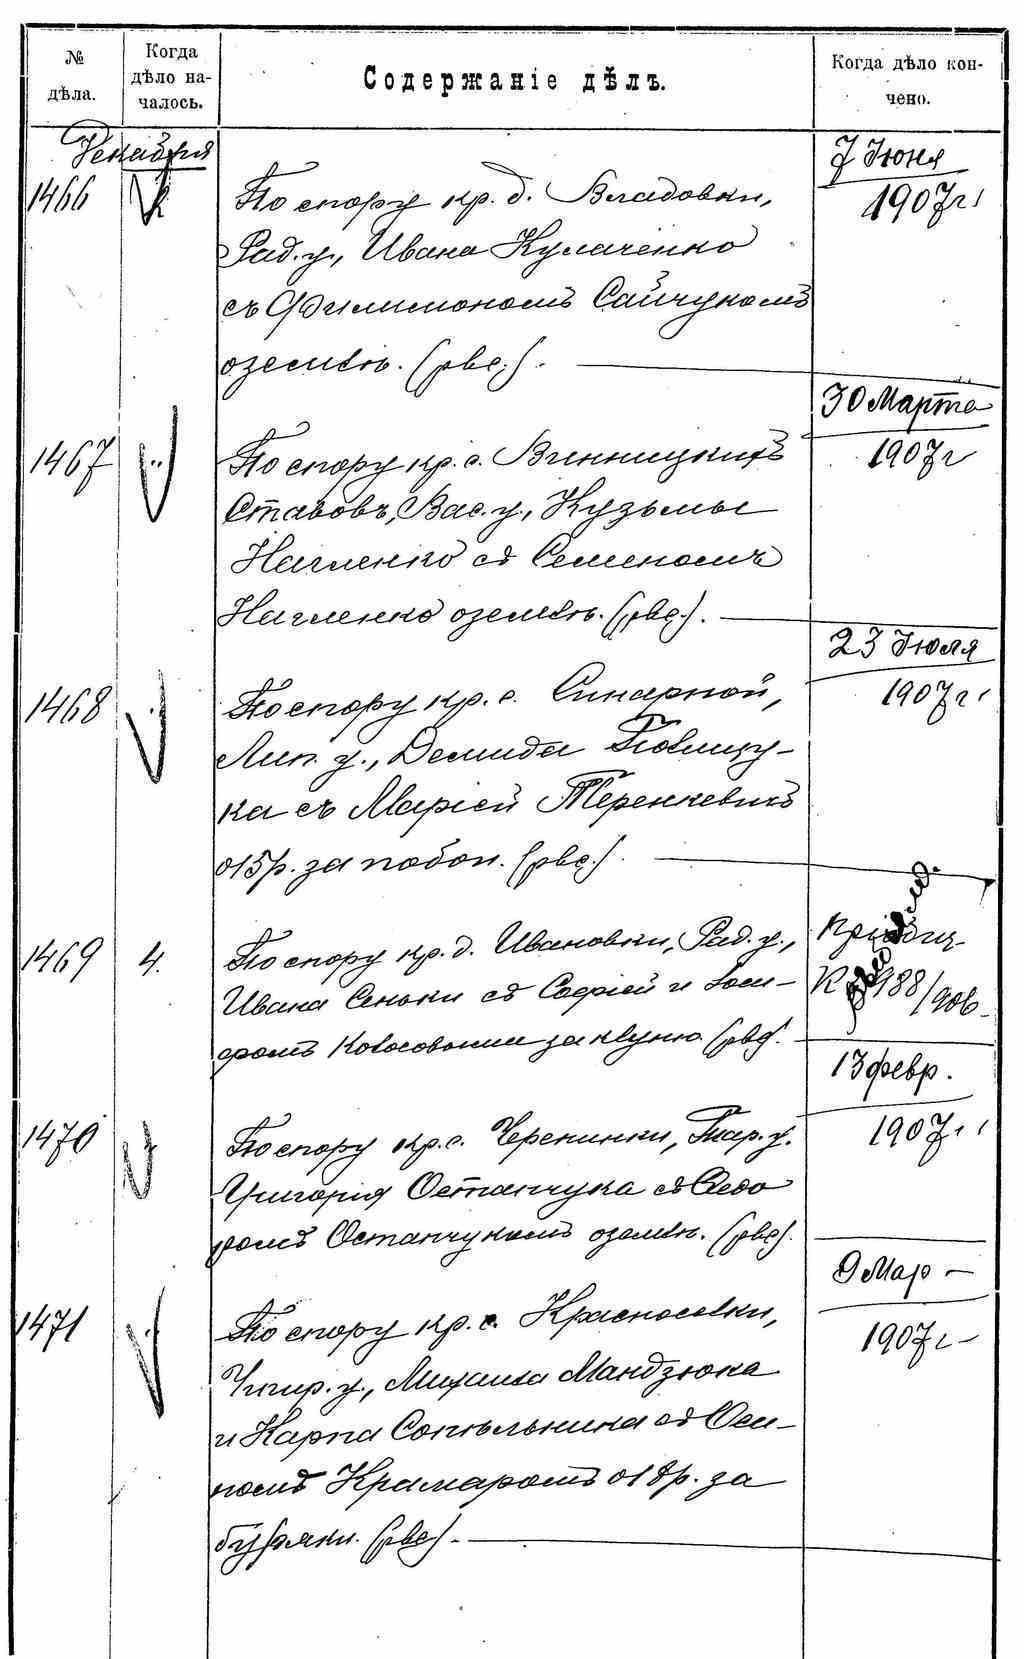 № дѣла.
Когда дѣло началось.
Содержаніе дѣлъ.
Когда дѣло кончено.
Декабря
1466
По спору кр. д. Владовки,
Рад. у., Ивана Кулаченко
съ Филимономъ Сайчукомъ
о землѣ. (рвс.).
7 Июня
1907 г.
1467
По спору кр. с. Винницкихъ
Ставовъ, Вас. у., Кузьмы
Нагленко съ Семеномъ
Нагленко о землѣ. (рвс.).
30 Марта
1907 г
1468
По спору кр. с. Синарной,
Лип. у., Демида
ка съ Маріей Теренкевичъ
о 15 р. за побои. (рвс.).
23 Июля
1907 г.
1469
4.
По спору кр. д. Ивановки, Рад. у.,
Ивана Сеньки съ Софіей и Іоси-
фомъ за клуню. (рвс).
К № 988/906
1470
По спору кр. с. Черепинки, Тар. у.
Григорія Остапчука съ Федо
ромъ Остапчукомъ о землѣ. (рвс).
13 февр.
1907 г.
1471
По спору кр. с. Красноселки,
Чигир. у., Михаила Мандзюка
и Карпа Сопѣльника съ Оси-
помъ Крамаромъ о 18 р. за
буряки. (рвс).
9 Мар
1907 г